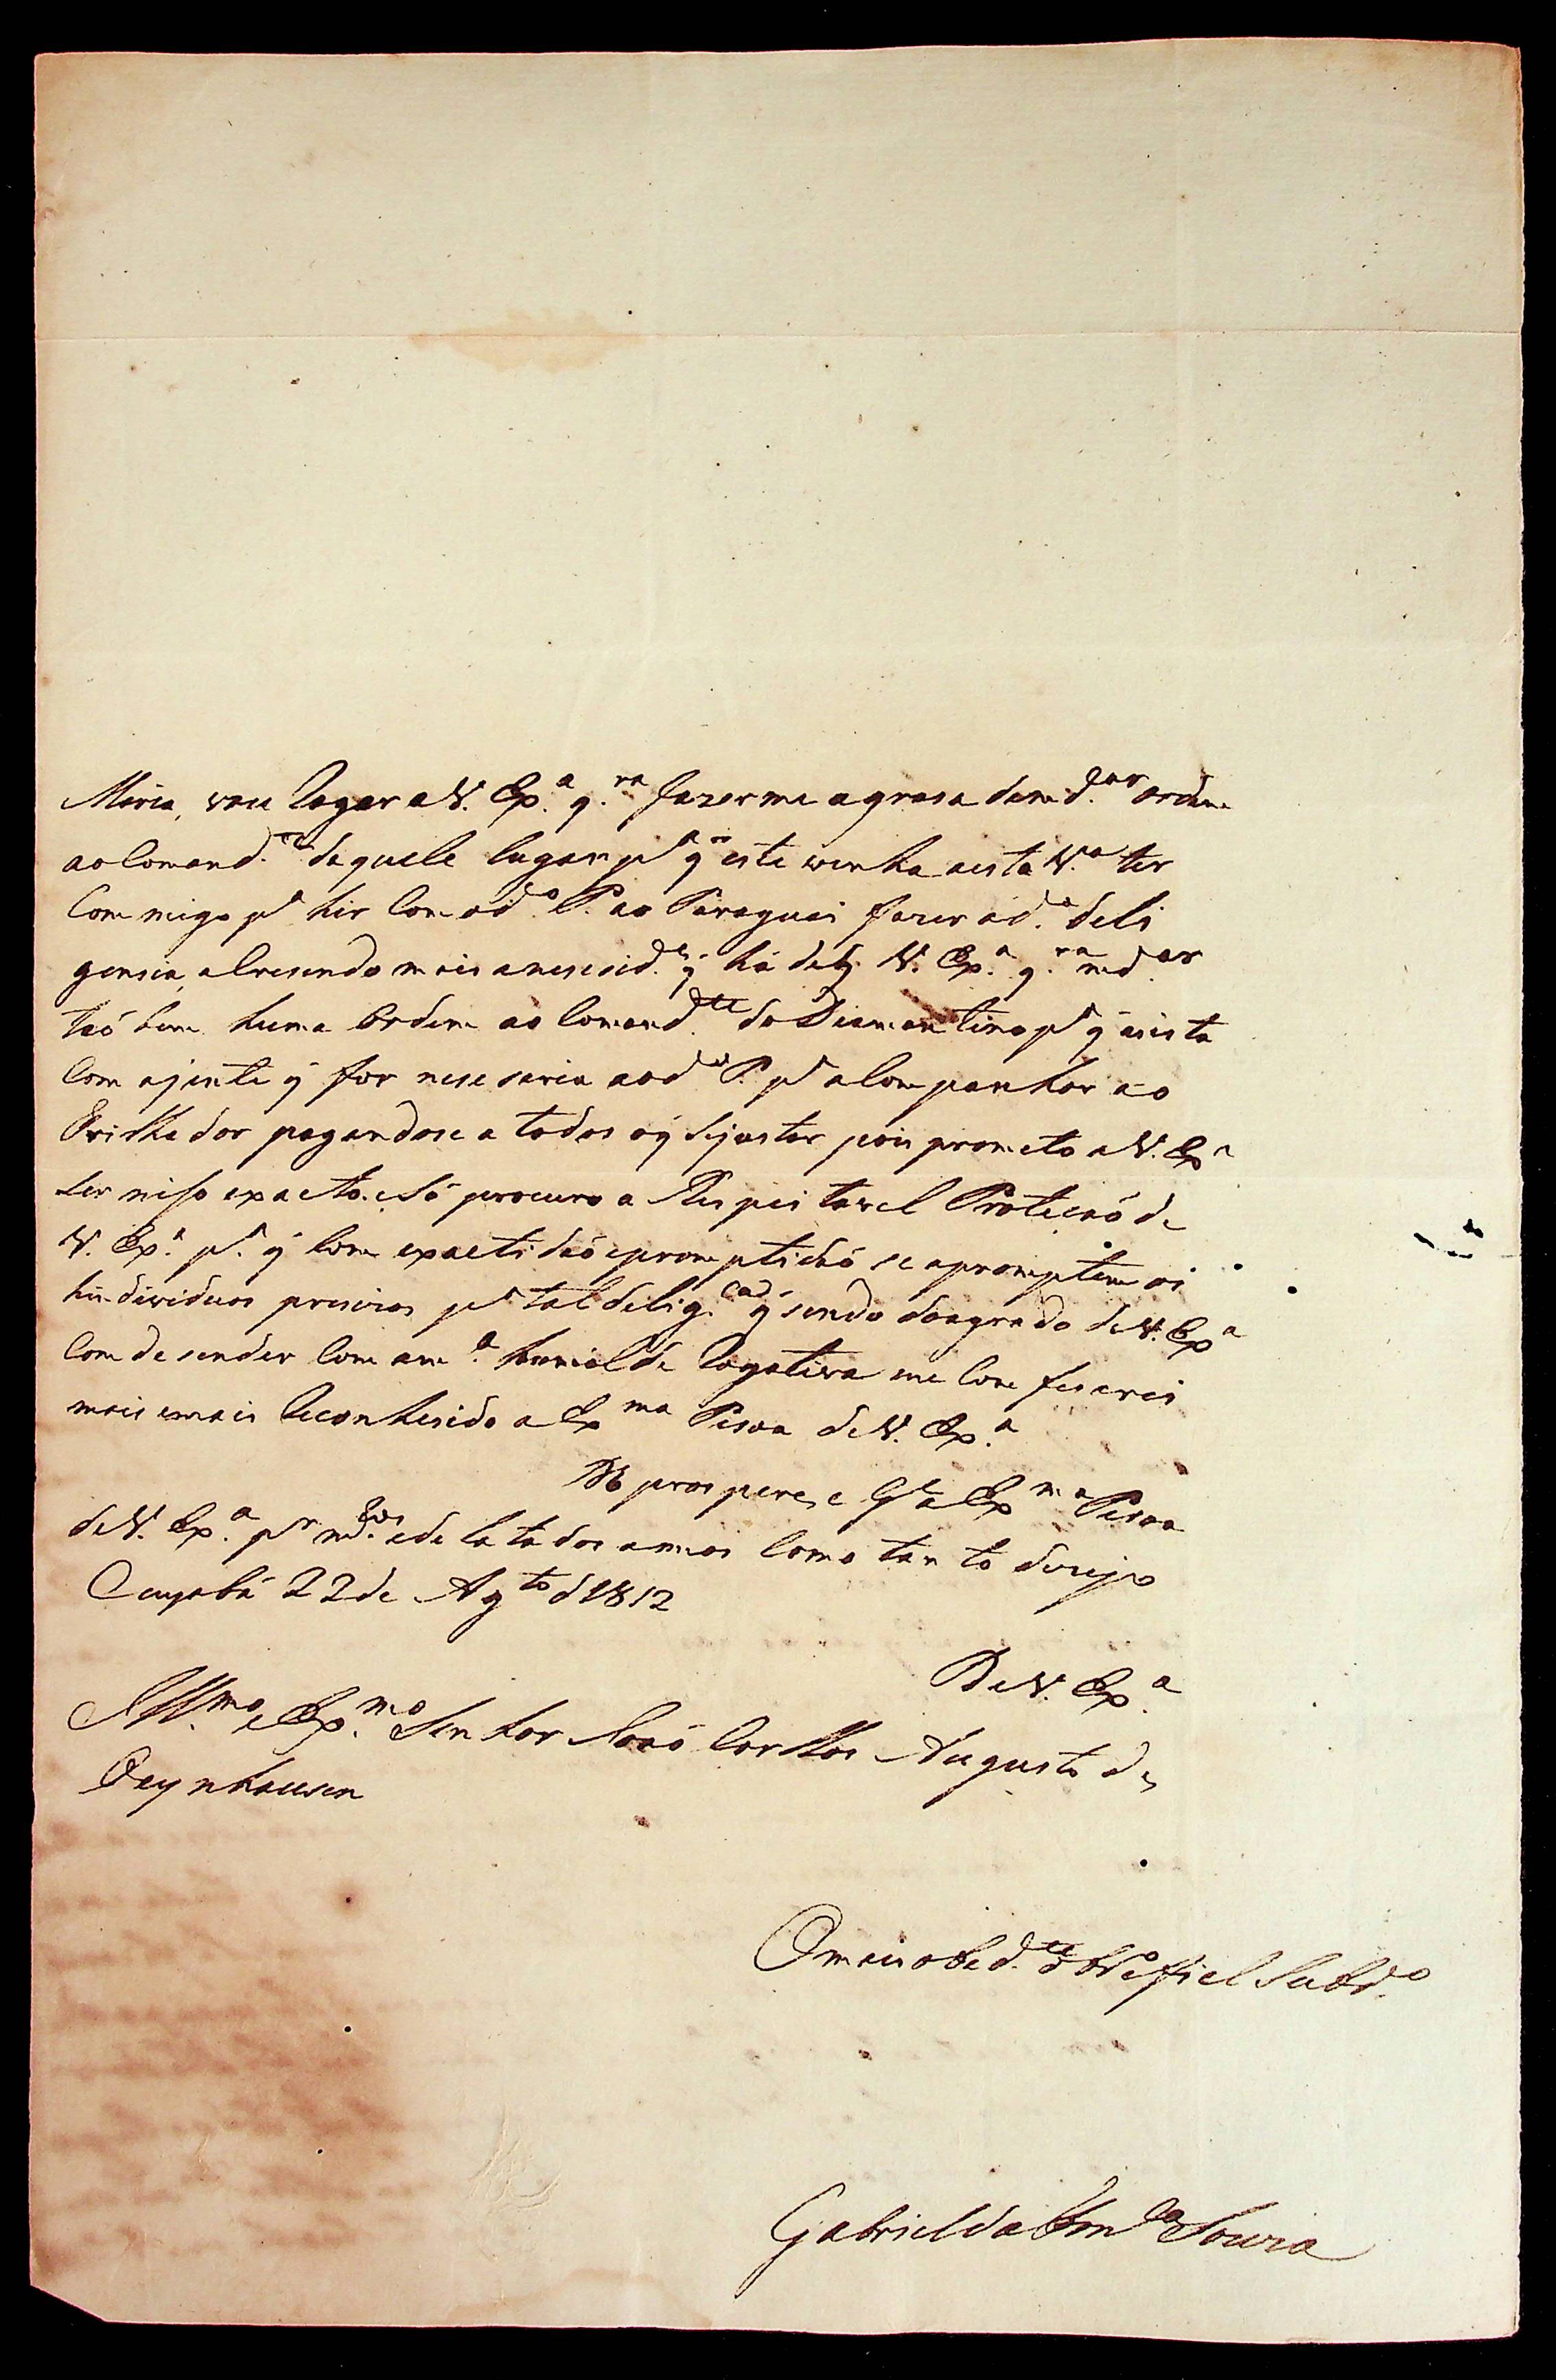 Maria, vou Rogar a V. Ex.ª q.ra fazerme a grasa de md.ar ordem
ao Comand.te daquele lugar p.ª q̃ este venha a esta V.ª ter
Com migo p.ª hir Com o d.º P. ao Paraguai fazer a d.ª deli
gensia, acresendo mais a nesesid.e q̃ há de q̃ V. Ex.ª q.ra md.ar
taõ bem huma Ordem ao Comand.te do Diamantino p.ª q̃ asista
Com a jente q̃ for nesesaria ao d.º P. p.ª aCompanhar ao
Trilhador pagandose a todos o q̃ se justar pois prometo a V. Ex.ª
ser niso exacto. e Só procuro a Respeitavel Protecaõ de
V. Ex.ª p.ª q̃ Com exactidaõ e promptidaõ se apromptem os
hindividuos presizos p.ª tal delig.cia q̃ sendo do agrado de V. Ex.ª
Comdesender Com a m.ª humilde Rogativa me Comfesarei
mais e mais Reconhesido a Ex.ma Pesoa de V. Ex.ª
D.s prospere, e G.e a Ex.ma Pesoa
de V. Ex.ª p.r m.tos e delatados annos Como tanto dezejo
Cuyabá 22 de Ag.to d 1812
De V. Ex.ª
Ill.mo e Ex.mo Senhor Joaõ Carllos Augusto de
Oeynhausen
O mais obed.te e fiel Subd.º
Gabriel da Fon.ca Souza